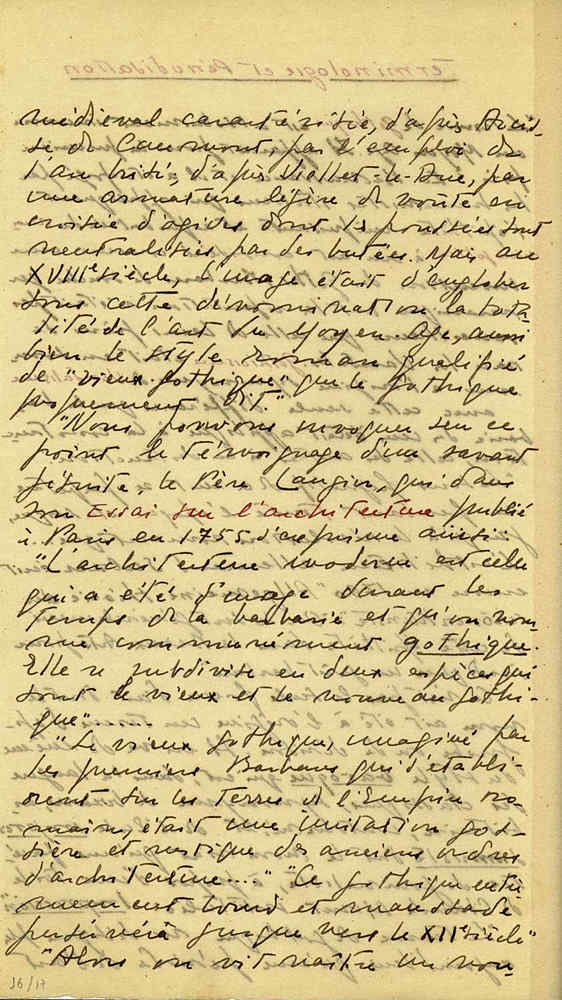 Terminologie et Périodisation
médiéval caractérisé, d'après Arcis-
se de Caumont, par l'emploi de
l'arc brisé; d'après Viollet-le-Duc, par
une armature légère de voûte en
croisée d'ogives, dont les poussées sont
neutralisées par des butées. Mais au
XVIIIe siècle, l'usage était d'englober
sous cette dénomination la tota-
lité de l'art du Moyen-Age, aussi
bien le style roman qualifié
de "vieux gothique" que le gothique
proprement dit."
"Nous pouvons invoquer sur ce
point le témoignage d'un savant
jésuite, le Père Laugier, qui dans
son Essai sur l'architecture publié
à Paris en 1755 s'exprime ainsi:
"L'architecture moderne est celle
qui a été d'usage durant les
temps de la barbarie et qu'on nom-
me communément gothique.
Elle se subdivise en deux espèces qui
sont le vieux et le nouveau gothi-
que"......
"Le vieux gothique, imaginé par
les premiers Barbares qui s'établi-
rent sur les terres de l'Empire ro-
main, était une imitation gros-
sière et rustique des anciens ordres
d'architecture...." "Ce gothique
est lourd et maussade
persévéra jusque vers le XIIe siècle"
"Alors on vit naître un nou-
16/17